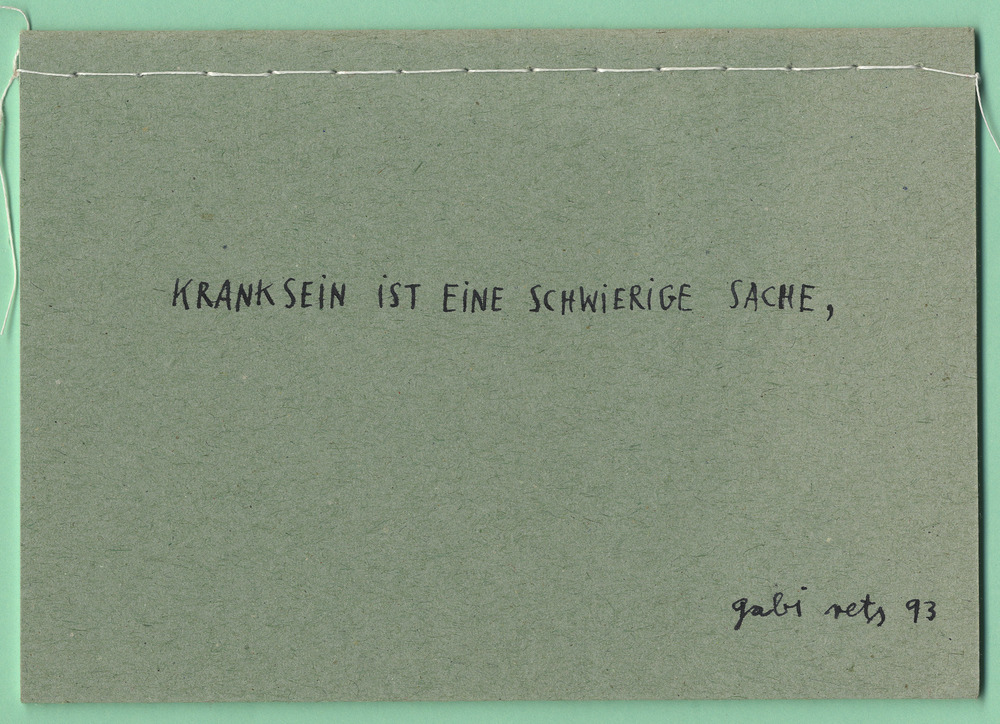 KRANKSEIN IST EINE SCHWIERIGE SACHE,
gabi rets 93